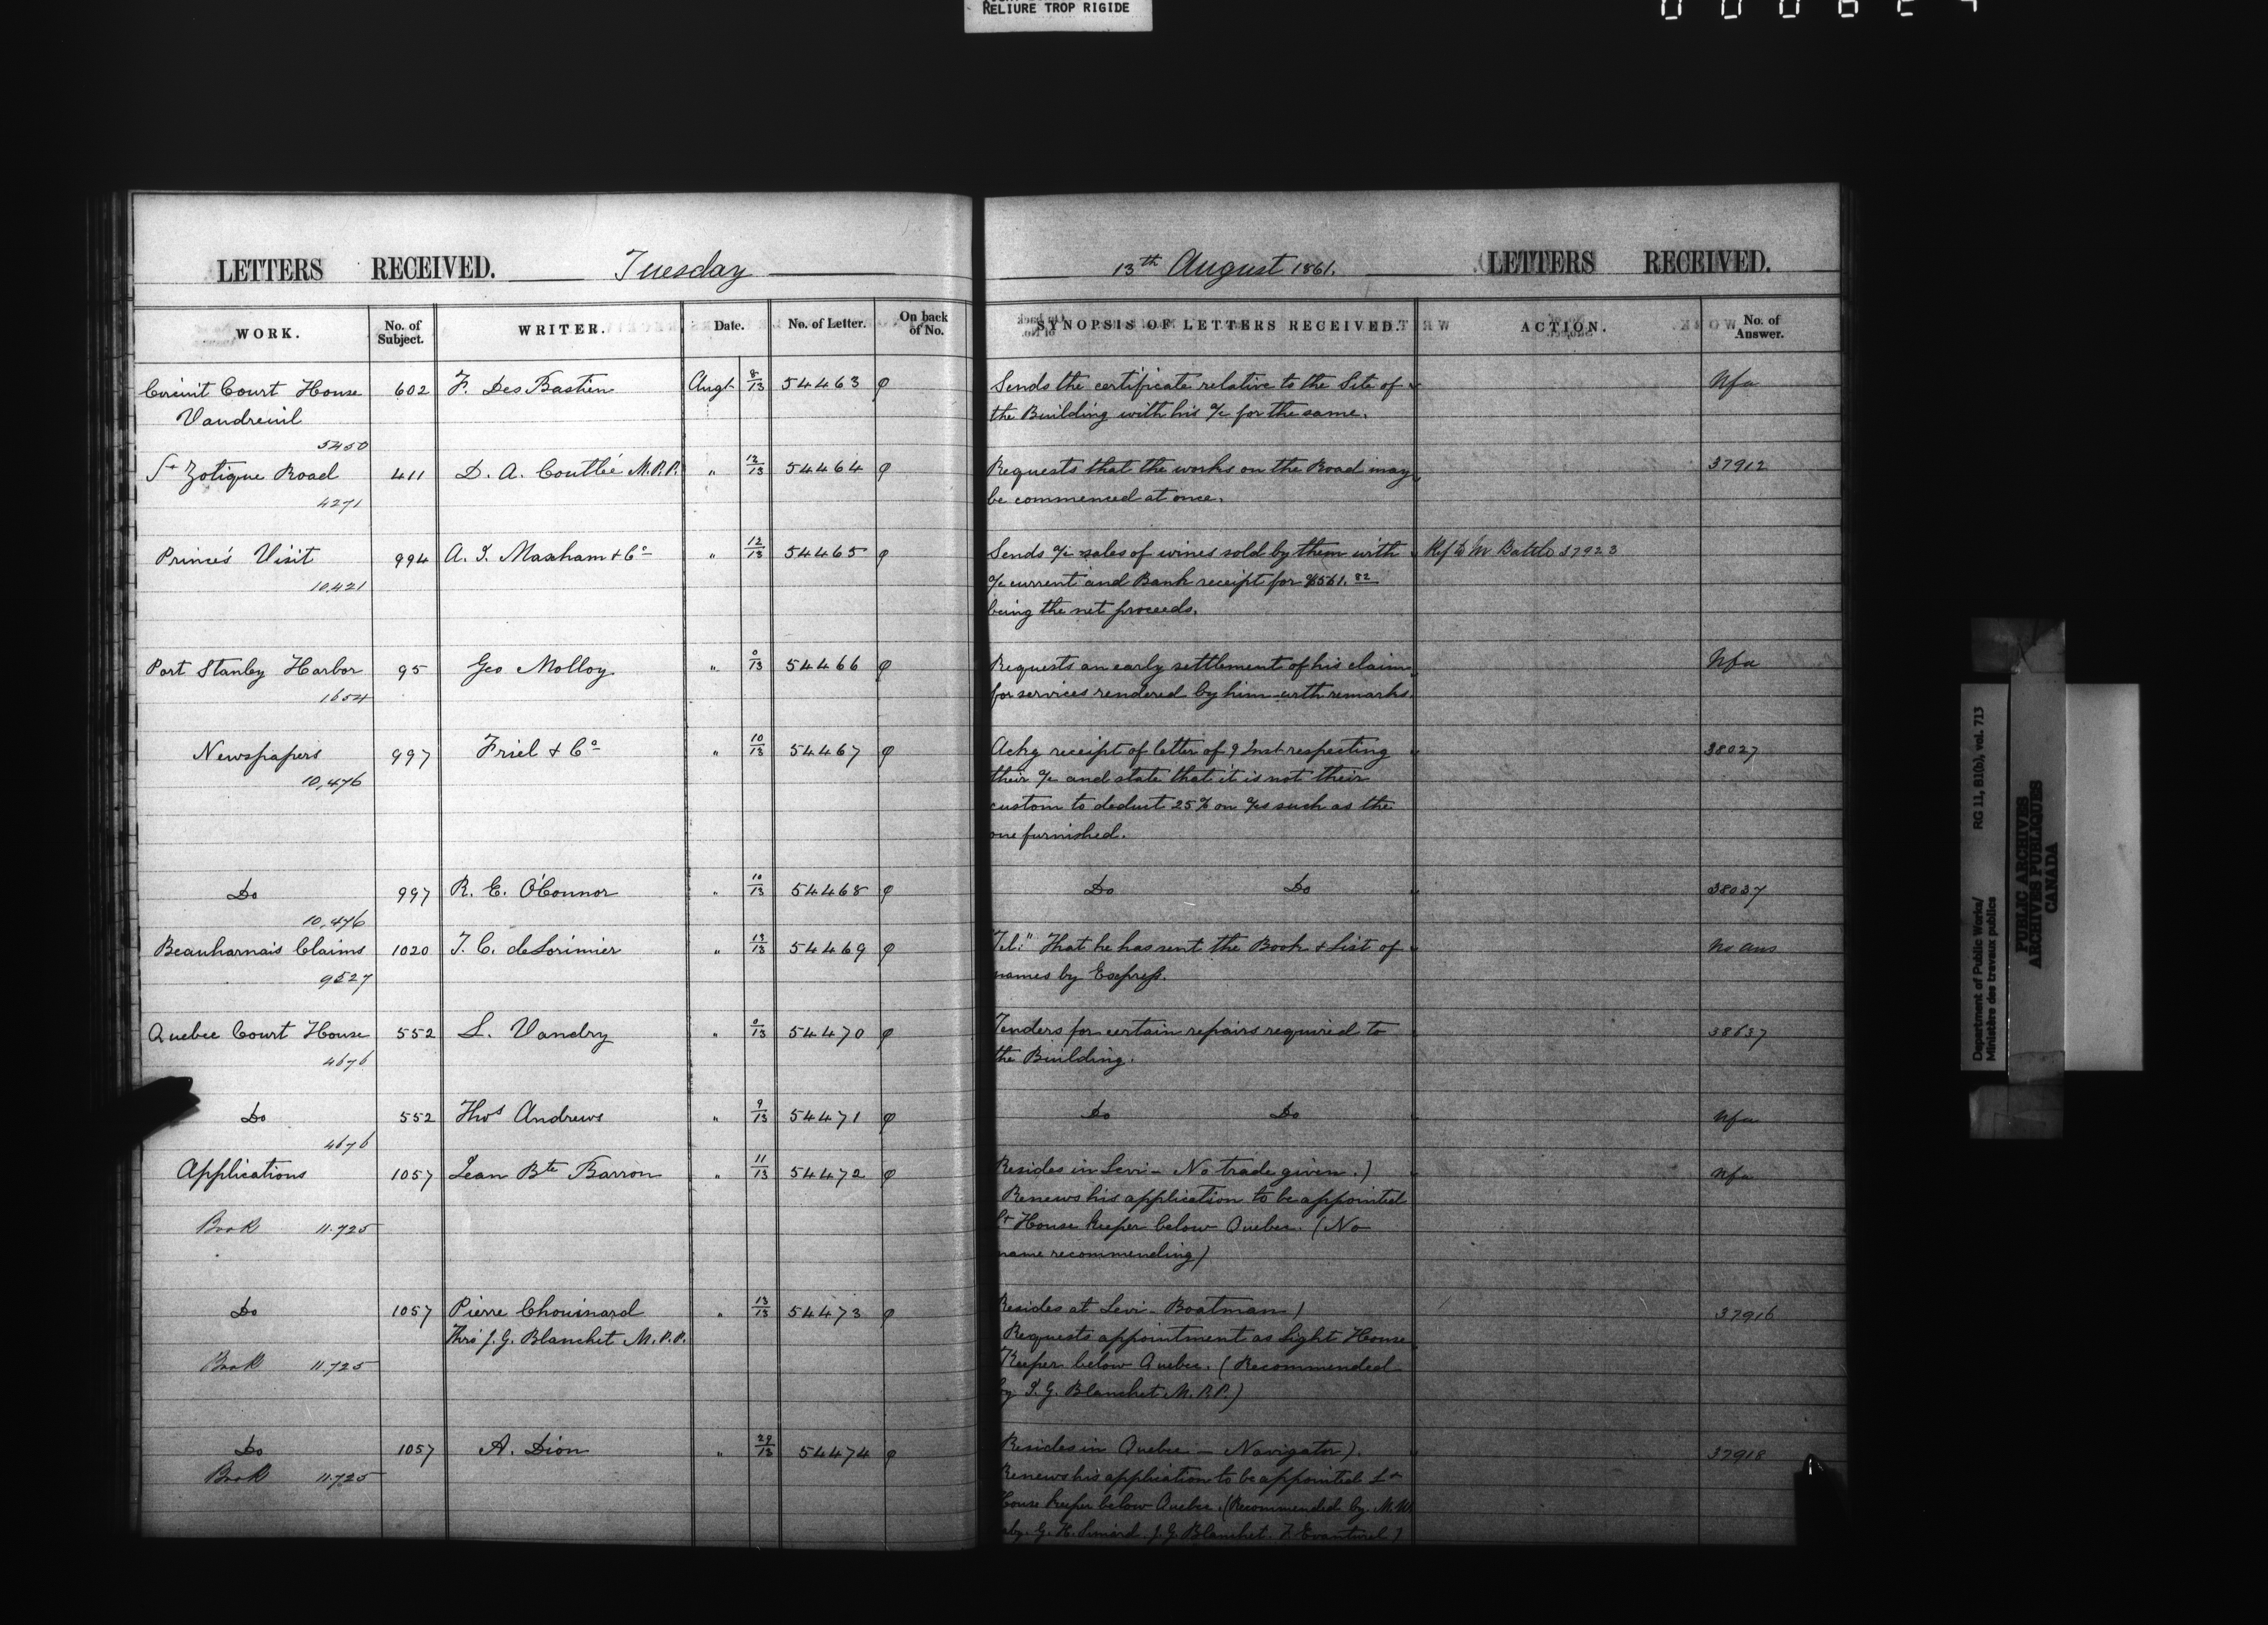 RELIURE TROP RIGIDE
LETTERS RECEIVED. Tuesday 13th August 1861. LETTERS RECEIVED.
WORK. No. of Subject. WRITER. Date. No. of Letter. On back of No. SYNOPSIS OF LETTERS RECEIVED. ACTION. No. of Answer.
Circuit Court House 602 F. Des Bastien Augt 8/13 54463 φ Sends the certificate relative to the Site of Nfa
Vaudreuil the Building with his a/c for the same.
5450
St Zotique Road 411 D. A. Coutlée M.P.P. " 12/13 54464 φ Requests that the works on the Road may 37912
4271 be commenced at once.
Prince's Visit 994 A. J. Maxham & Co " 12/13 54465 φ Sends a/c sales of wines sold by them with Ref to Mr 37923
10,421 a/c current and Bank receipt for $561.82
being the net proceeds.
Port Stanley Harbor 95 Geo Molloy " 0/13 54466 φ Requests an early settlement of his claim Nfa
1654 for services rendered by him with remarks.
Newspapers 997 Friel & Co " 10/13 54467 φ Ackg receipt of letter of 9 Inst respecting 38027
10,476 their a/c and state that it is not their
custom to deduct 25% on a/cs such as the
one furnished.
Do 997 R. E. O'Connor " 10/13 54468 φ Do Do 38037
10,476
Beauharnais Claims 1020 T. C. deLorimier " 13/13 54469 φ "Tel:" That he has sent the Book & List of No ans
9527 names by Express.
Quebec Court House 552 L. Vandry " 0/13 54470 φ Tenders for certain repairs required to 38637
4676 the Building.
Do 552 Thos Andrews " 9/13 54471 φ Do Do Nfa
4676
Applications 1057 Jean Bte Barron " 11/13 54472 φ Resides in Levi - No trade given.) Nfa
Renews his application to be appointed
Book 11.725 Lt House keeper below Quebec. (No
name recommending)
Do 1057 Pierre Chouinard " 13/13 54473 φ Resides at Levi - Boatman) 37916
Thro' J. G. Blanchet M.P.P. Requests appointment as Light House
Book 11.725 Keeper below Quebec. (Recommended
by J. G. Blanchet M.P.P.)
Do 1057 A. Dion " 29/13 54474 φ Resides in Quebec - Navigator). 37918
Book 11.725 Renews his application to be appointed Lt
House keeper below Quebec. (Recommended by M. W.
G. H. Simard. J. G. Blanchet. F. Evanturel)
Department of Public Works/ RG 11, B1(b), vol. 713
Ministère des travaux publics
PUBLIC ARCHIVES
ARCHIVES PUBLIQUES
CANADA